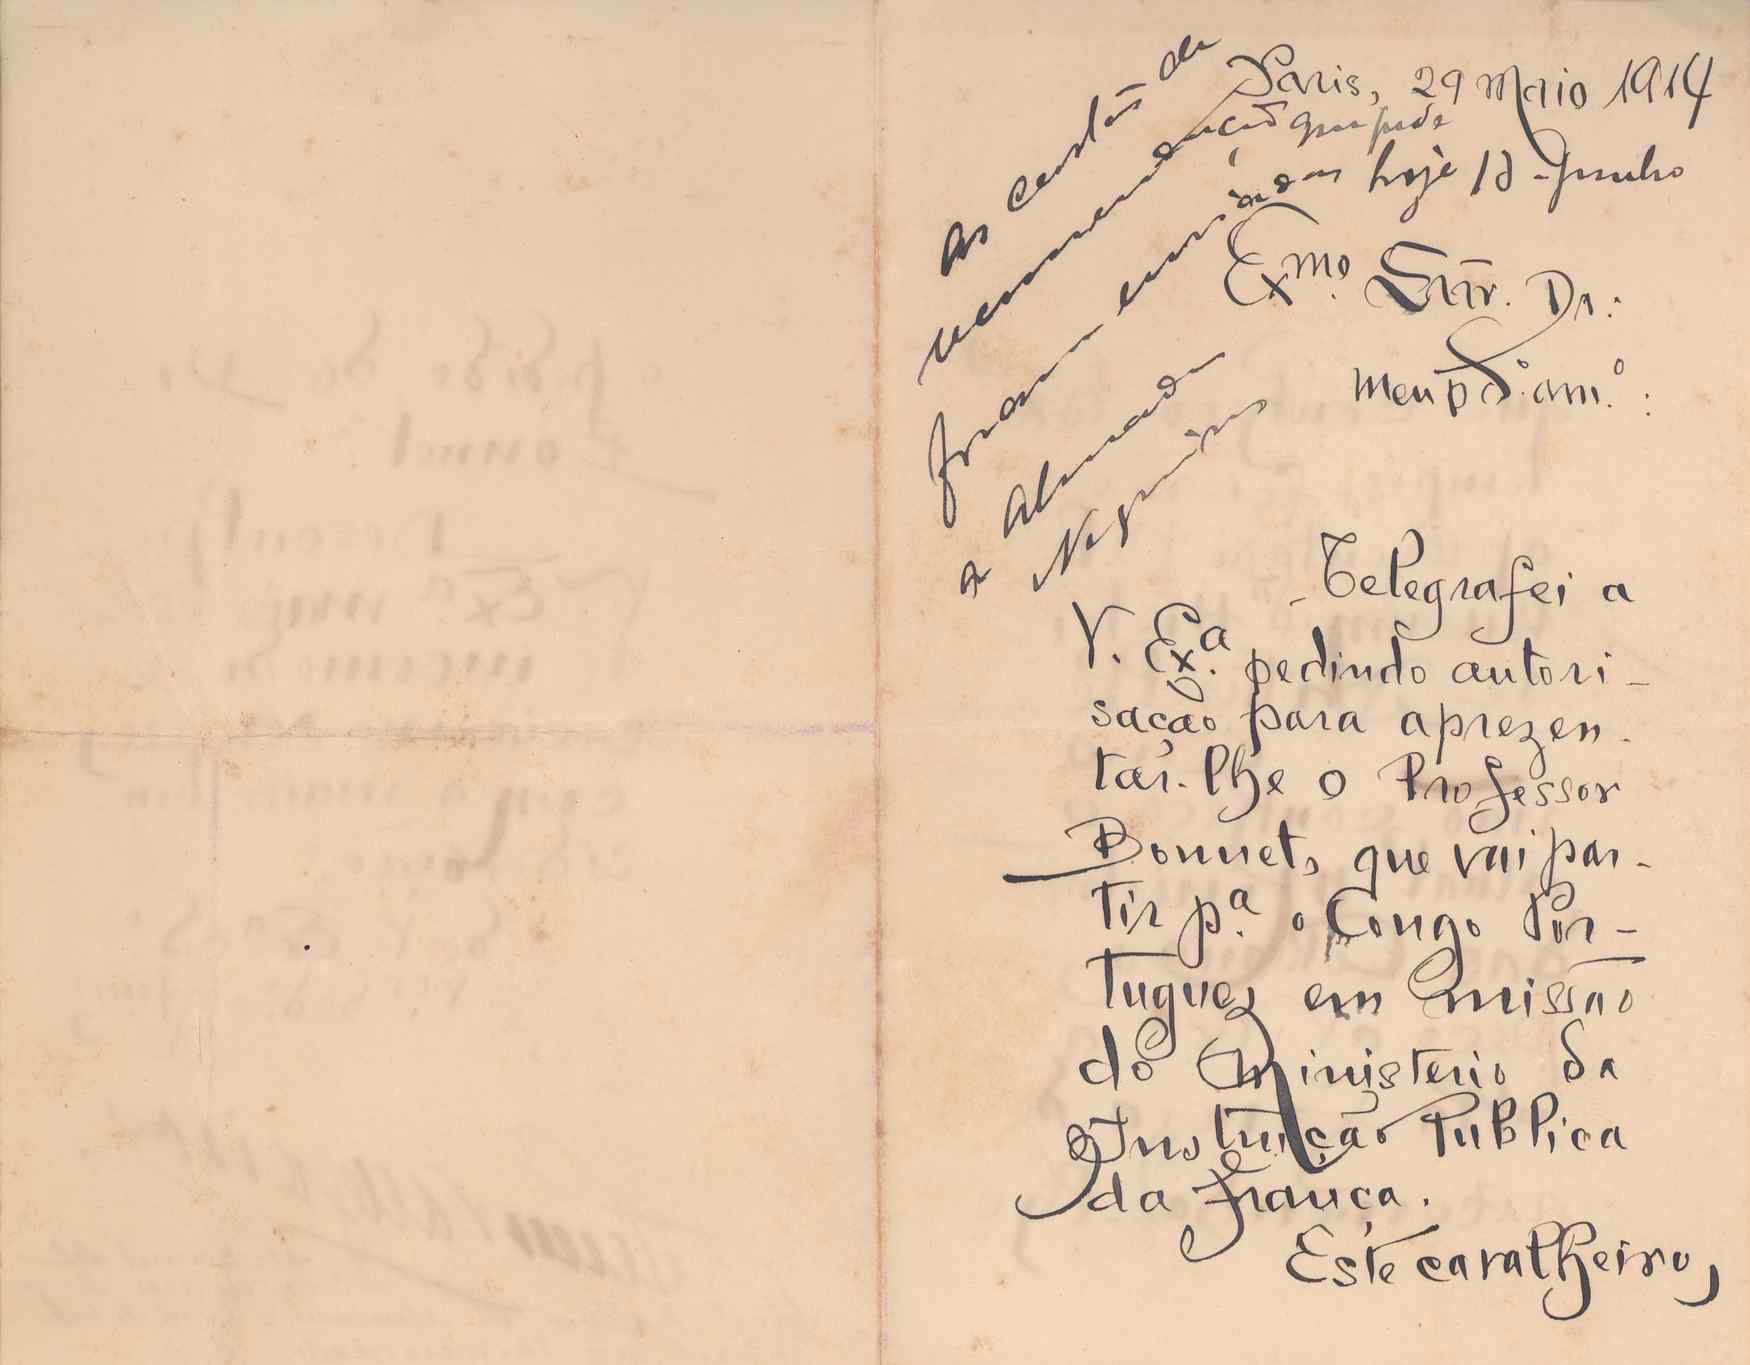 Paris, 29 Maio 1914
As cartas de
recomendação que pede
foram enviadas hoje 1 d-Junho
a Almada
Negreiros
Exmo. Snr. Dr.:
meu pº. am.º:
- Telegrafei a
V. Ex.ª pedindo autori-
sação para aprezen-
tar-lhe o Professor
Bonnet, que vai par-
tir p.ª o Congo Por-
tuguez em missão
do Ministerio da
Instrução Publica
da França.
Este cavalheiro,